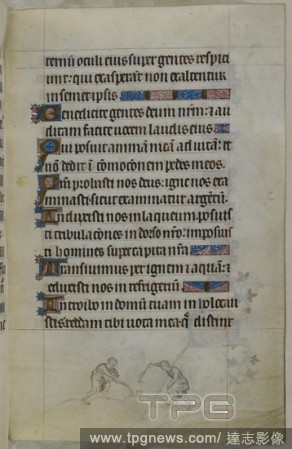 ternū oculi eius super gentes respici
unt: qui exasperāt non exaltentur
in semet ipsis.
Benedicite gentes deum nrm: ⁊ au
ditam facite uocem laudis eius
Qui posuit animam meā ad uitā: et
nō dedit ī cōmocōem pedes meos.
Qm̄ probasti nos deus: igne nos exa
minasti sicut examinatur argētū.
Induxisti nos in laqueum posuisti
tribulacōnes in dorso nrō: imposuis
ti homines super capita nrā
Transiuimus per ignem ⁊ aquā: ⁊
eduxisti nos in refrigeriū.
Introibo in domū tuam in holocau
stis reddam tibi uota mea q̄ distinx
TPG
www.tpgnews.com/ 達志影像